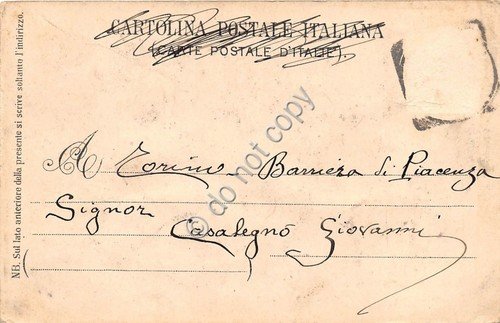 CARTOLINA POSTALE ITALIANA
(CARTE POSTALE D'ITALIE).
NB. Sul lato anteriore della presente si scrive soltanto l'indirizzo.
A Torino Barriera di Piacenza
Signor
Casalegno Giovanni
© do not copy